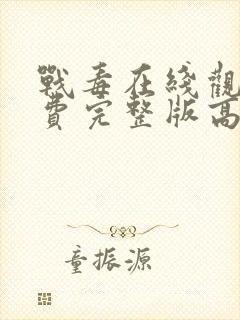 戰毒在綫觀
費完整版高
童振源